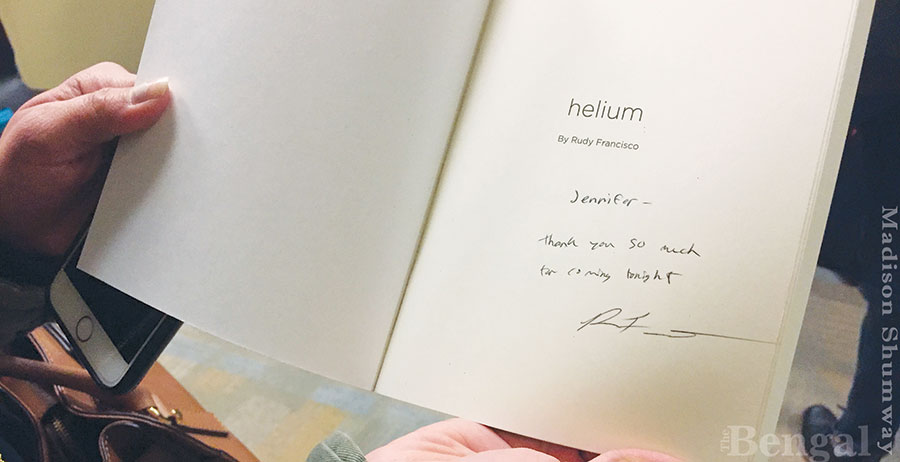 helium
By Rudy Francisco
Jennifer –
Thank you so much
for coming tonight
Madison Shumway
The Bengal